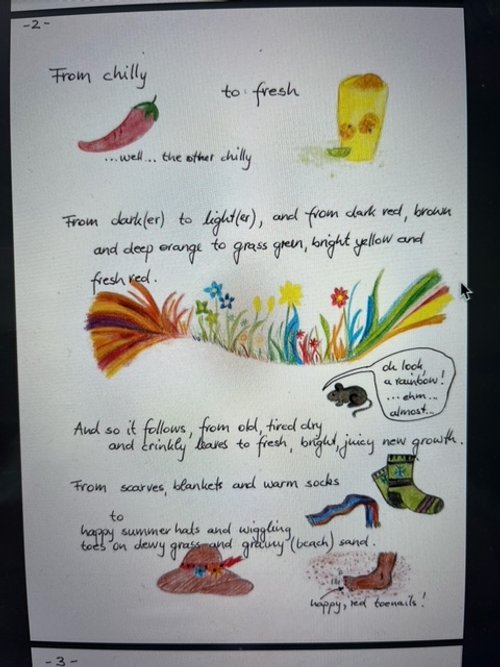 -2-
From chilly
to fresh
...well... the other chilly
From dark(er) to light(er), and from dark red, brown
and deep orange to grass green, bright yellow and
fresh red.
oh look,
a rainbow!
...ehm...
almost...
And so it follows, from old, tired dry
and crinkly leaves to fresh, bright, juicy new growth.
From scarves, blankets and warm socks
to
happy summer hats and wiggling
toes on dewy grass and grainy (beach) sand.
happy, red toenails!
-3-